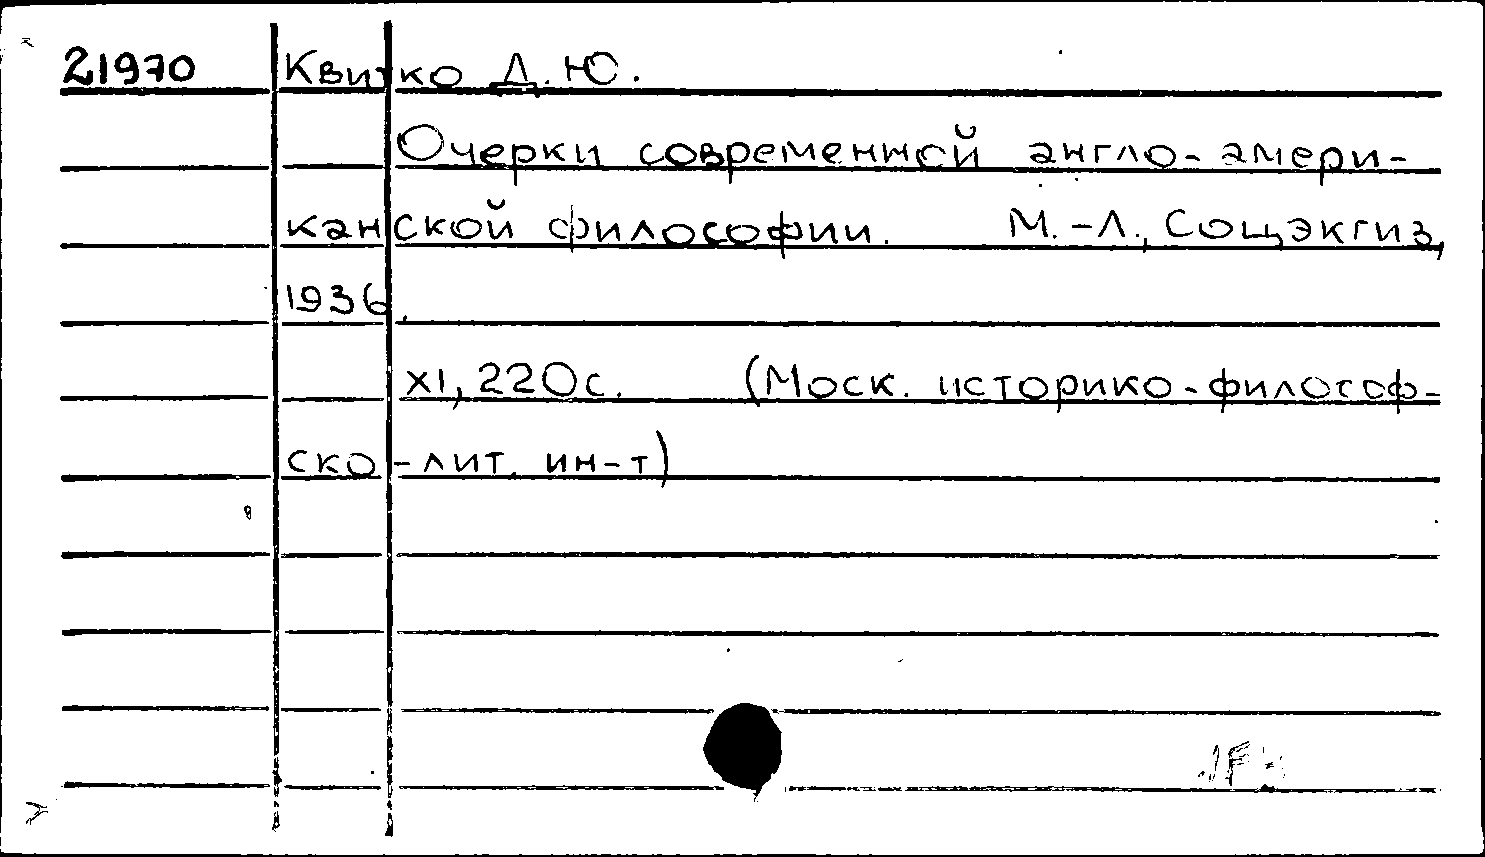 21970 Квитко Д. Ю.
Очерки современной англо-амери-
канской философии. М.-Л., Соцэкгиз,
1936.
XI, 220с. (Моск. историко-философ-
ско-лит. ин-т)